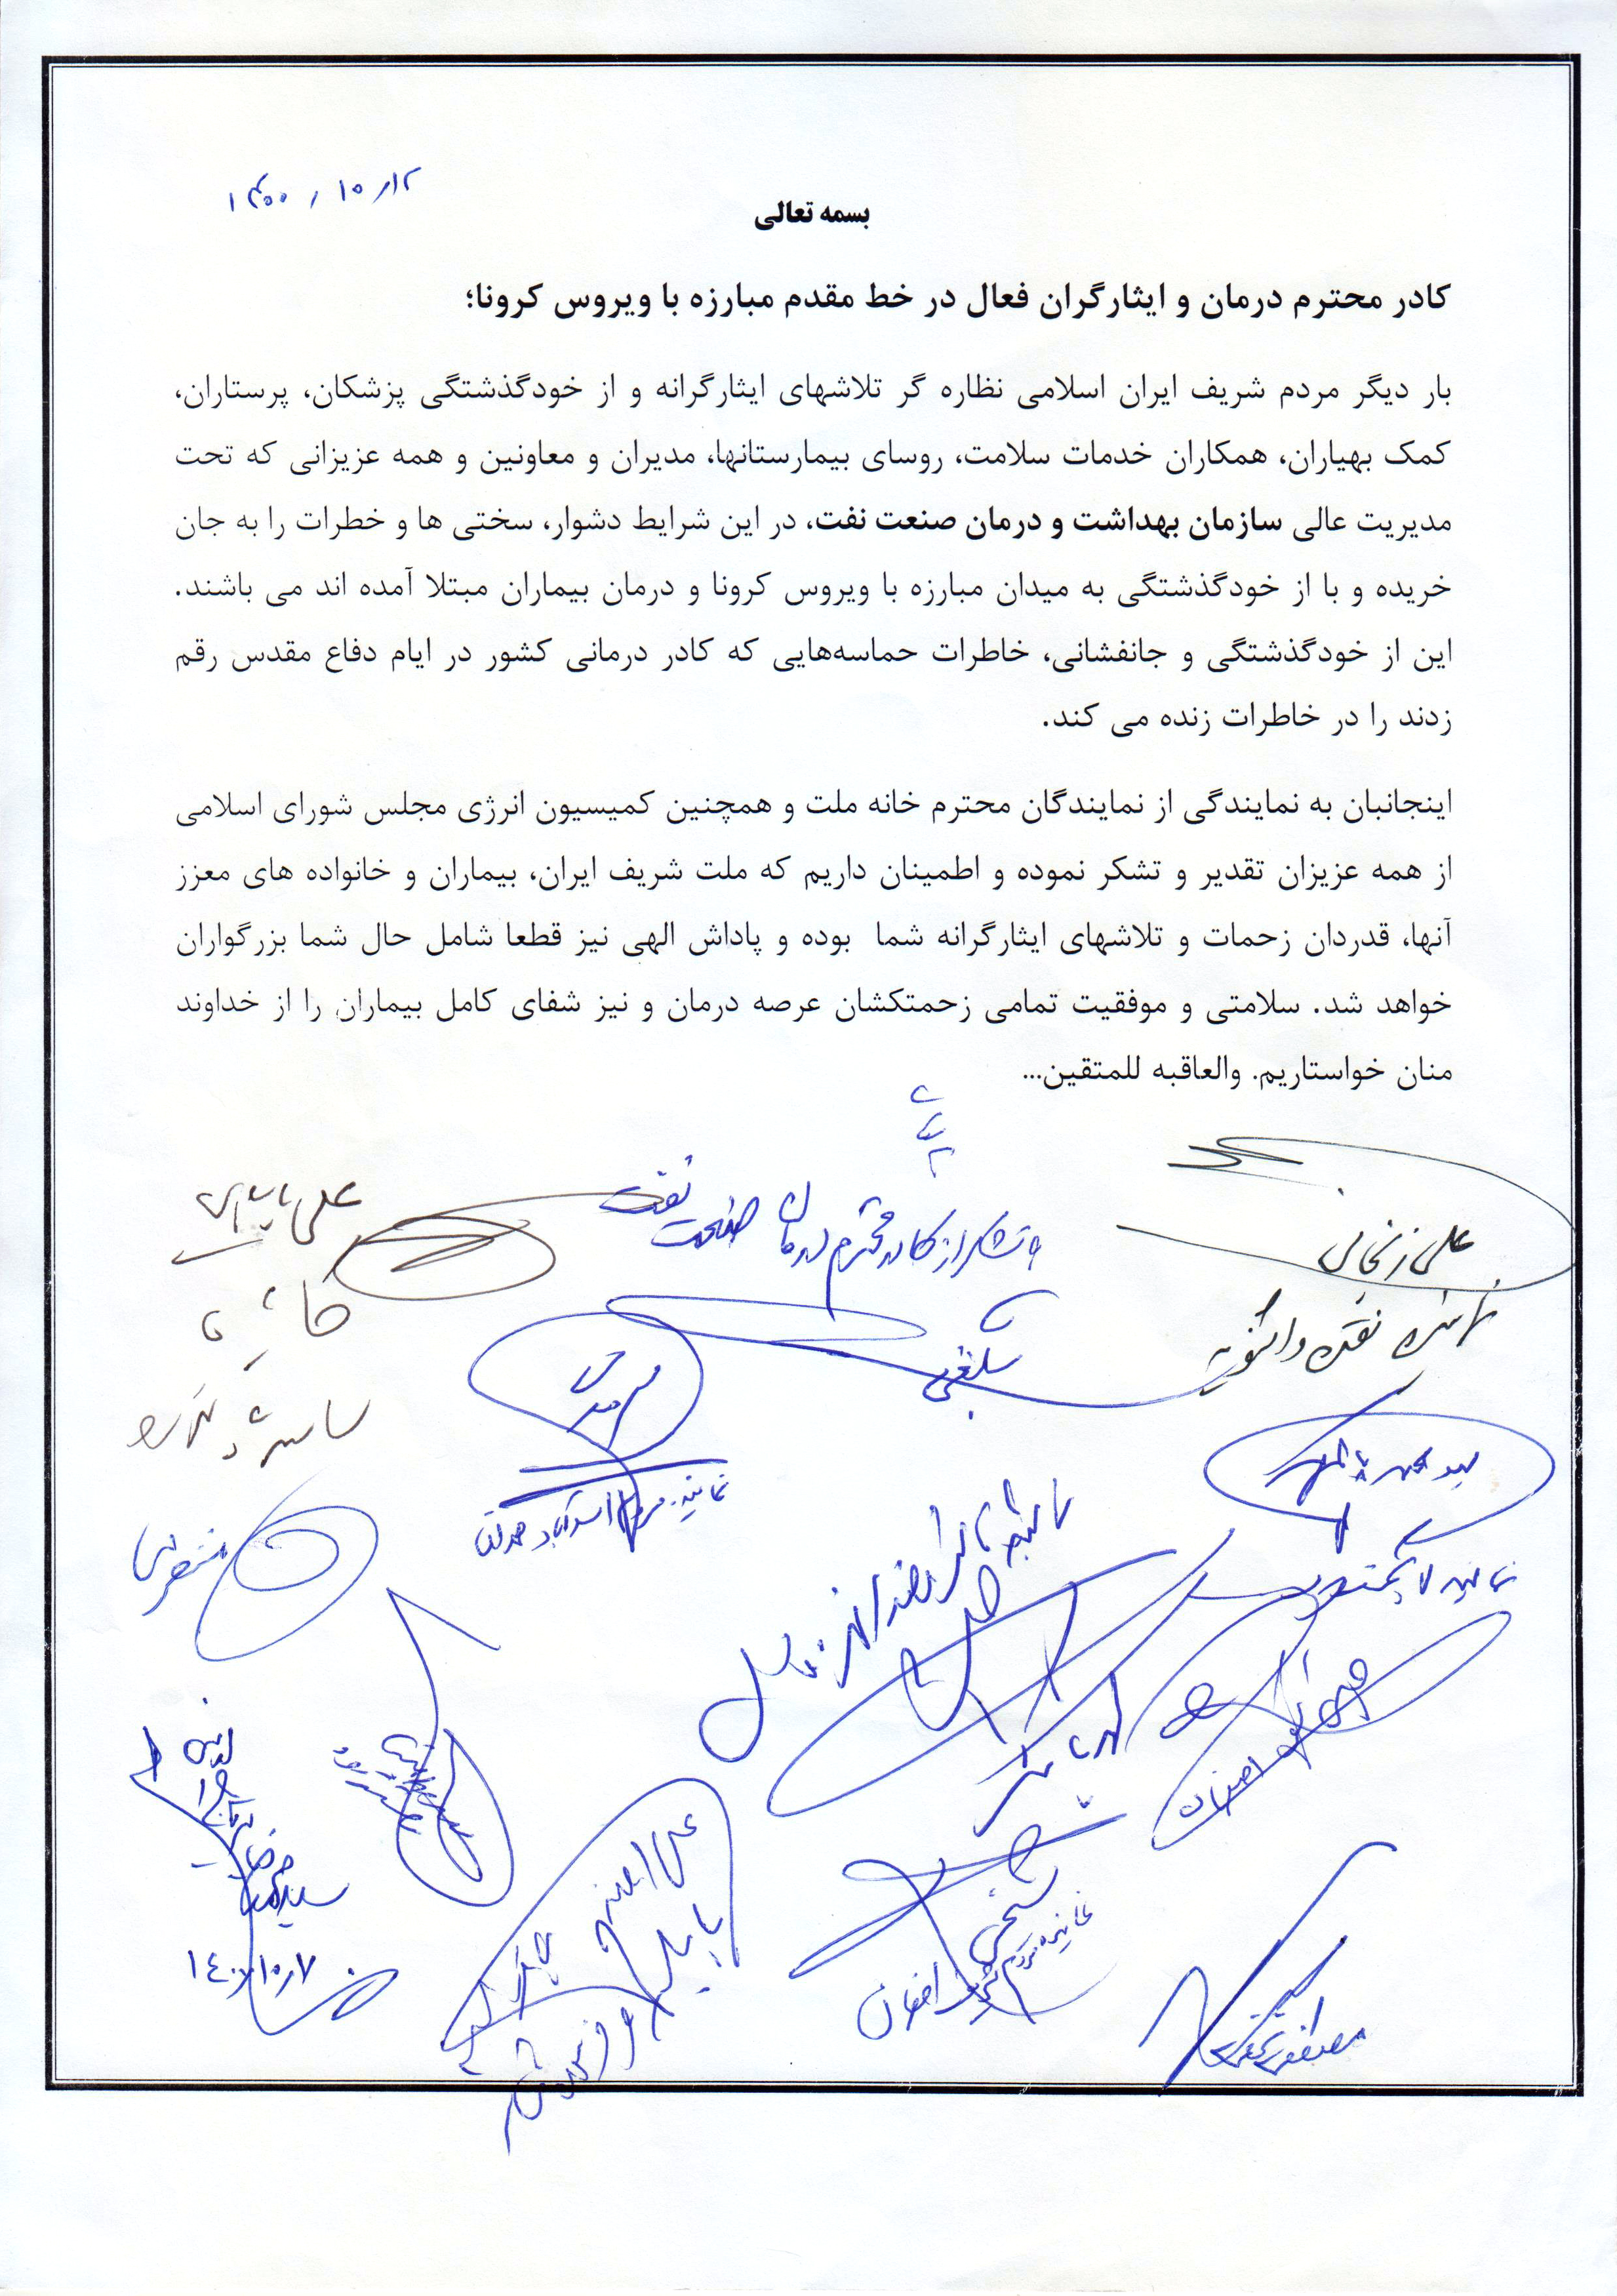 ۱۴۰۰/۱۰/۱۲
بسمه تعالی
کادر محترم درمان و ایثارگران فعال در خط مقدم مبارزه با ویروس کرونا؛
بار دیگر مردم شریف ایران اسلامی نظاره گر تلاشهای ایثارگرانه و از خودگذشتگی پزشکان، پرستاران،
کمک بهیاران، همکاران خدمات سلامت، روسای بیمارستانها، مدیران و معاونین و همه عزیزانی که تحت
مدیریت عالی سازمان بهداشت و درمان صنعت نفت، در این شرایط دشوار، سختی ها و خطرات را به جان
خریده و با از خودگذشتگی به میدان مبارزه با ویروس کرونا و درمان بیماران مبتلا آمده اند می باشند.
این از خودگذشتگی و جانفشانی، خاطرات حماسه‌هایی که کادر درمانی کشور در ایام دفاع مقدس رقم
زدند را در خاطرات زنده می کند.
اینجانبان به نمایندگی از نمایندگان محترم خانه ملت و همچنین کمیسیون انرژی مجلس شورای اسلامی
از همه عزیزان تقدیر و تشکر نموده و اطمینان داریم که ملت شریف ایران، بیماران و خانواده های معزز
آنها، قدردان زحمات و تلاشهای ایثارگرانه شما بوده و پاداش الهی نیز قطعا شامل حال شما بزرگواران
خواهد شد. سلامتی و موفقیت تمامی زحمتکشان عرصه درمان و نیز شفای کامل بیماران را از خداوند
منان خواستاریم. والعاقبه للمتقین...
با تشکر از کادر محترم درمان صنعت نفت
علی زنجانی
نماینده نقده و اشنویه
نماینده مردم اسدآباد همدان
نماینده مردم شریف اصفهان
۱۴۰۰/۱۰/۷